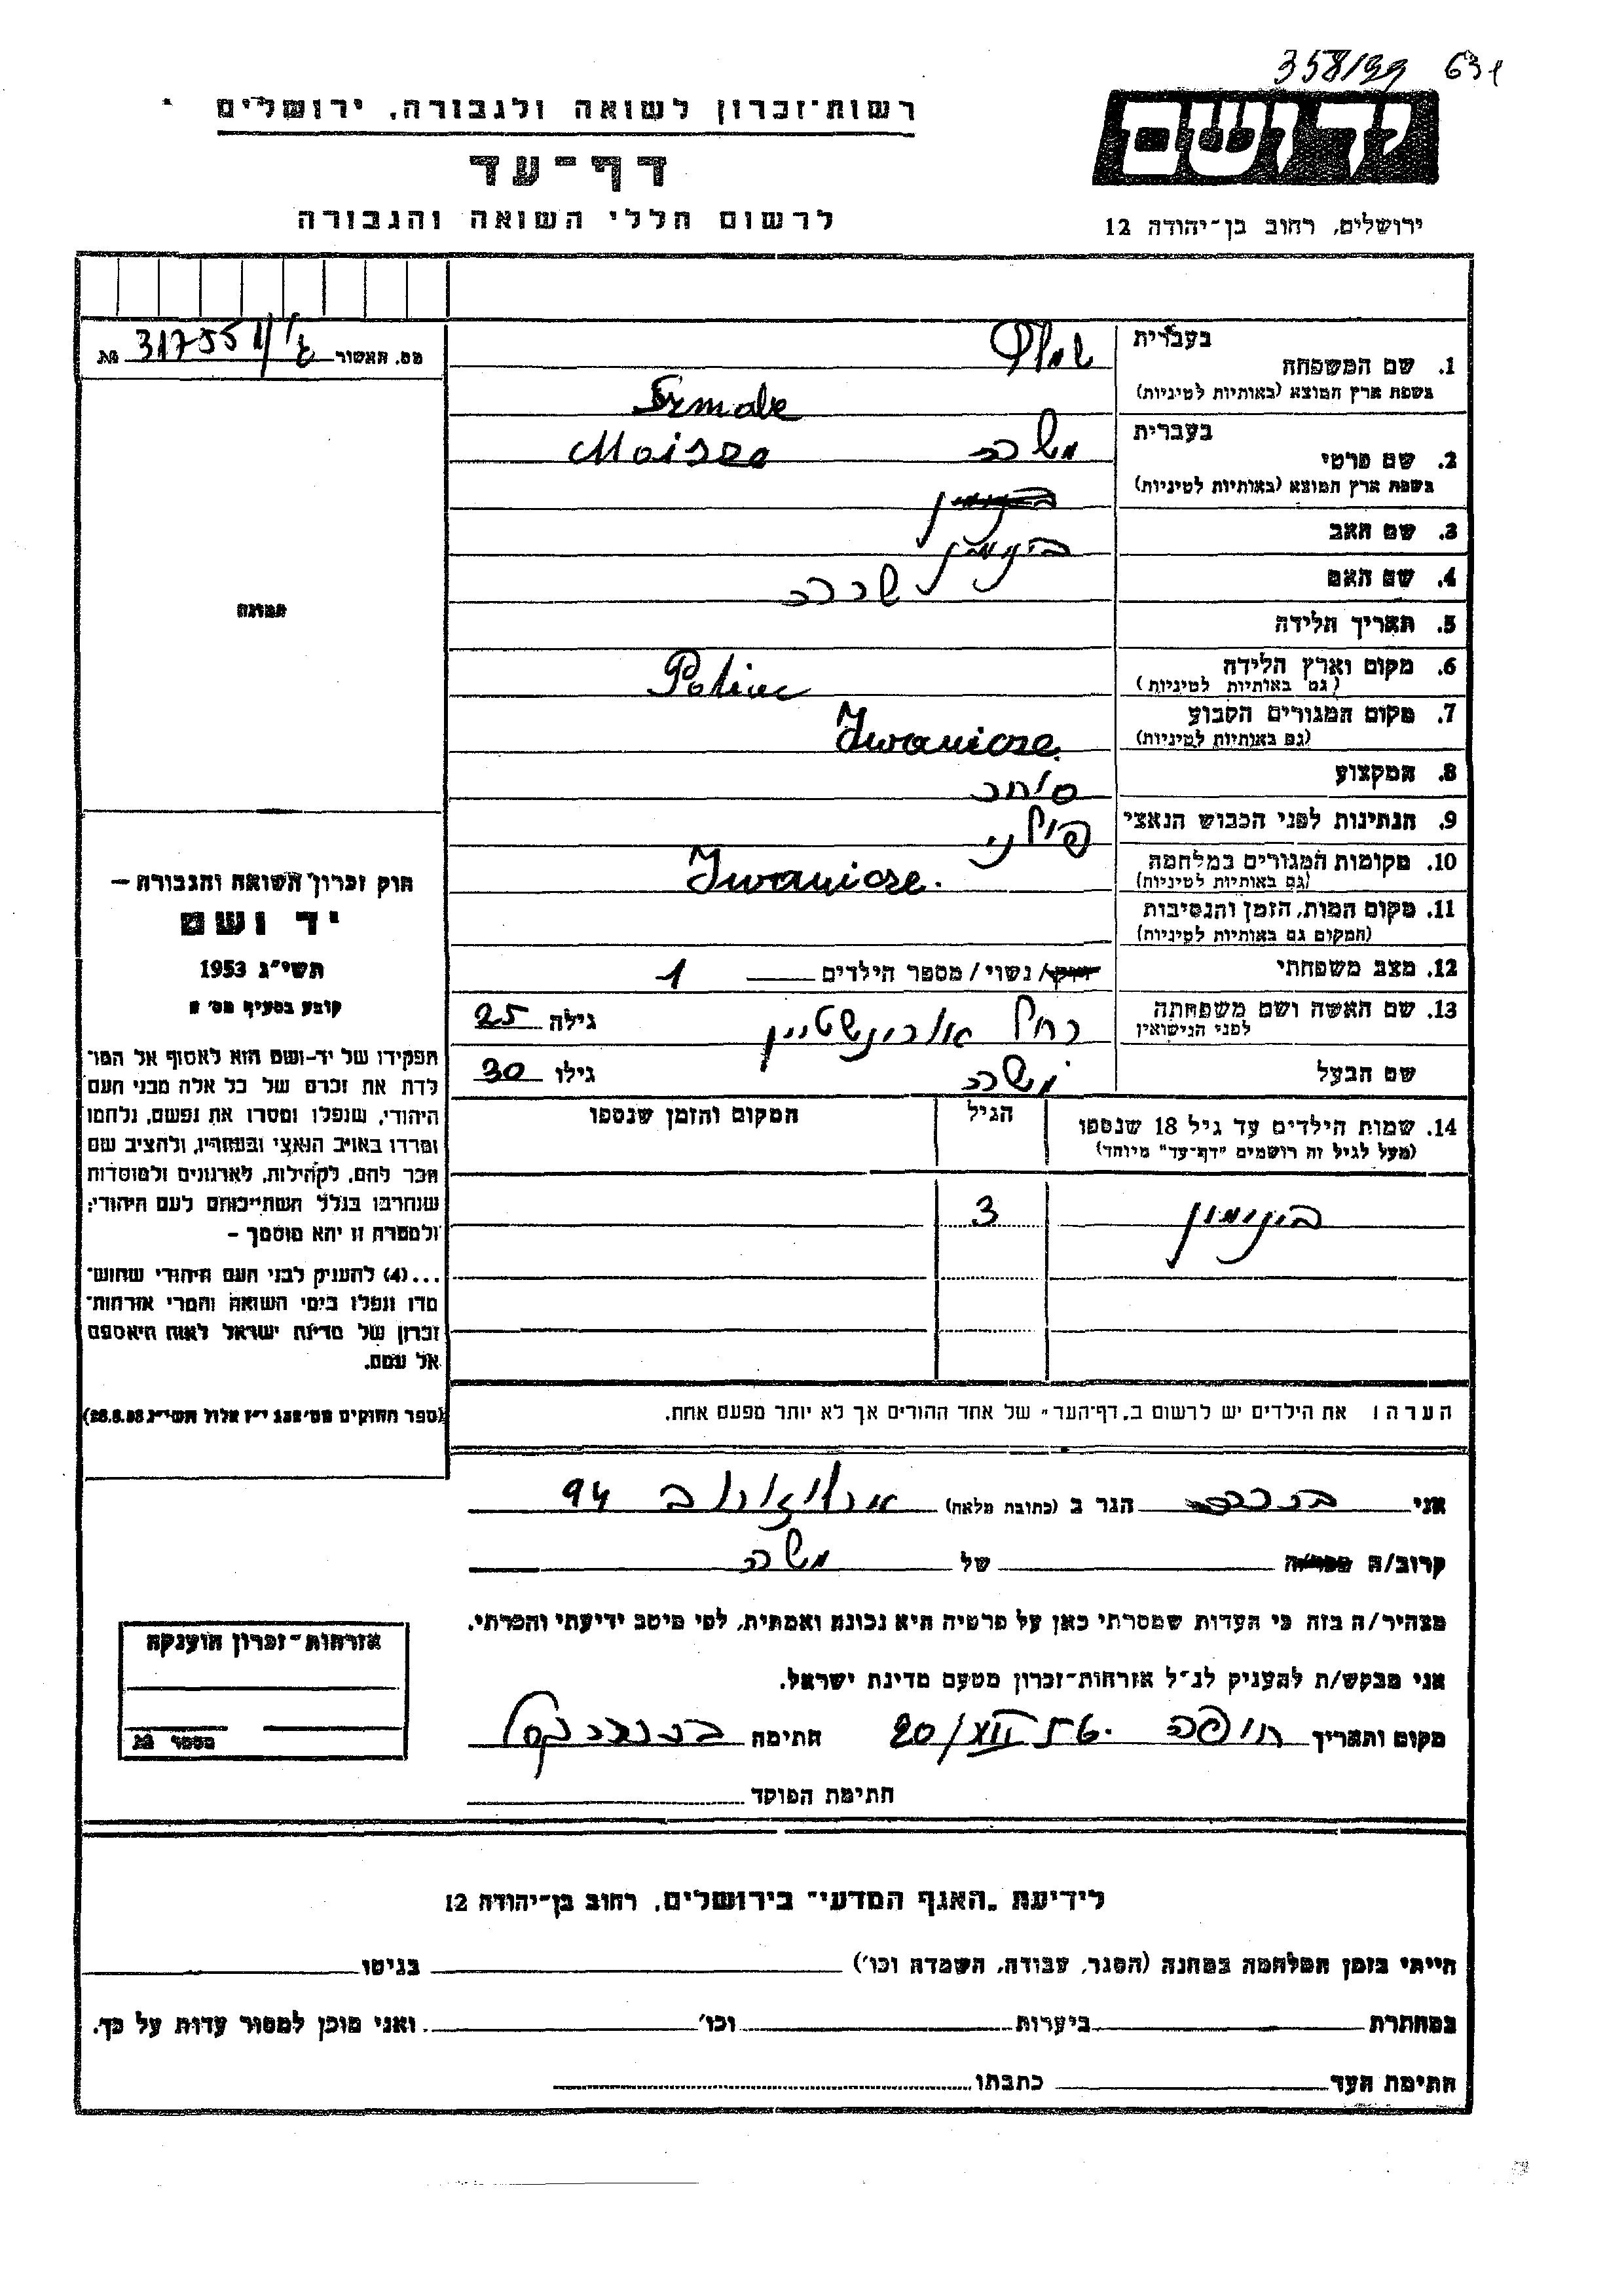 358/99 631
יד ושם
ירושלים, רחוב בן־יהודה 12
רשות־זכרון לשואה ולגבורה, ירושלים
דף־עד
לרשום חללי השואה והגבורה
מס. האשור 317551
בעברית
1. שם המשפחה
בשפת ארץ המוצא (באותיות לטיניות)
Szmalc
בעברית
2. שם פרטי משה Moisze
בשפת ארץ המוצא (באותיות לטיניות)
3. שם האב בנימין
4. שם האם שרה
5. תאריך הלידה
6. מקום וארץ הלידה
(גם באותיות לטיניות)
7. מקום המגורים הקבוע Iwanicze
(גם באותיות לטיניות)
8. המקצוע סוחר
9. הנתינות לפני הכבוש הנאצי פולני
10. מקומות המגורים במלחמה Iwanicze.
(גם באותיות לטיניות)
11. מקום המות, הזמן והנסיבות
(המקום גם באותיות לטיניות)
12. מצב משפחתי רוק/ נשוי/ מספר הילדים 1
13. שם האשה ושם משפחתה רחל אורינשטיין גילה 25
לפני הנישואין
שם הבעל משה גילו 30
14. שמות הילדים עד גיל 18 שנספו הגיל המקום והזמן שנספו
(מעל לגיל זה רושמים "דף־עד" מיוחד)
בנימין 3
הערה: את הילדים יש לרשום ב„דף־העד" של אחד ההורים אך לא יותר מפעם אחת.
תמונה
חוק זכרון השואה והגבורה –
יד ושם
תשי"ג 1953
קובע בסעיף מס' 2
תפקידו של יד־ושם הוא לאסוף אל המו־
לדת את זכרם של כל אלה מבני העם
היהודי, שנפלו ומסרו את נפשם, נלחמו
ומרדו באויב הנאצי ובעוזריו, ולהציב שם
וזכר להם, לקהילות, לארגונים ולמוסדות
שנחרבו בגלל השתייכותם לעם היהודי;
ולמטרה זו יהא מוסמך –
...(4) להעניק לבני העם היהודי שהוש־
מדו ונפלו בימי השואה והמרי אזרחות־
זכרון של מדינת ישראל לאות היאספם
אל עמם.
(ספר החוקים מס' 132 י"ז אלול תשי"ג 28.8.53)
אני הגר ב (כתובת מלאה) ארלוזורוב 94
קרוב/ה מכר/ה של משה
מצהיר/ה בזה כי העדות שמסרתי כאן על פרטיה היא נכונה ואמתית, לפי מיטב ידיעתי והכרתי.
אני מבקש/ת להעניק לנ"ל אזרחות־זכרון מטעם מדינת ישראל.
מקום ותאריך חיפה 20/XII 56. חתימה
חתימת הפוקד
אזרחות־זכרון הוענקה
מספר
לידיעת „האגף המדעי" בירושלים, רחוב בן־יהודה 12
הייתי בזמן המלחמה במחנה (הסגר, עבודה, השמדה וכו') בגיטו
במחתרת ביערות וכו' ואני מוכן למסור עדות על כך.
חתימת העד כתבתו